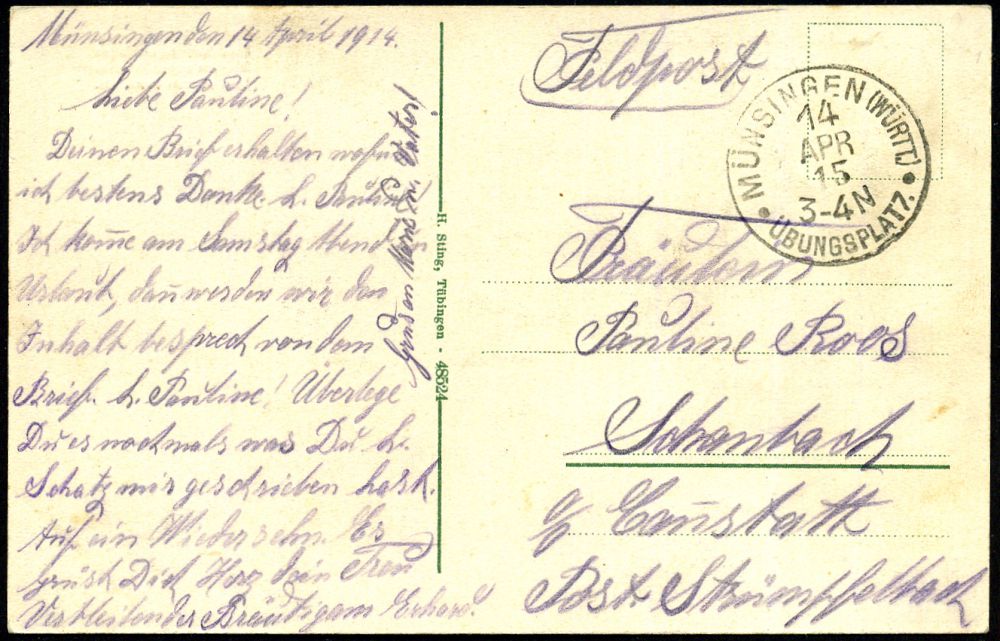 Münsingen den 14 April 1914.
Liebe Pauline!
Deinen Brief erhalten wofür
ich bestens Danke. L. Pauline!
Ich kom̄e am Samstag Abend in
Urlaub, dan̄ werden wir den
Inhalt besprech von dem
Brief. L. Pauline! Überlege
Du es nochmals was Du L.
Schatz mir geschrieben hast.
Auf ein Wiedersehn. Es
grüst Dich Herz dein Treu
Verbleibender Bräutigam Erhard.
Gruß
H. Sting, Tübingen - 48524
Feldpost
MÜNSINGEN (WÜRTT.)
14
APR
15
3-4N
ÜBUNGSPLATZ.
Fräulein
Pauline Roos
Schanbach
Can̄statt
Post Strümpfelbach